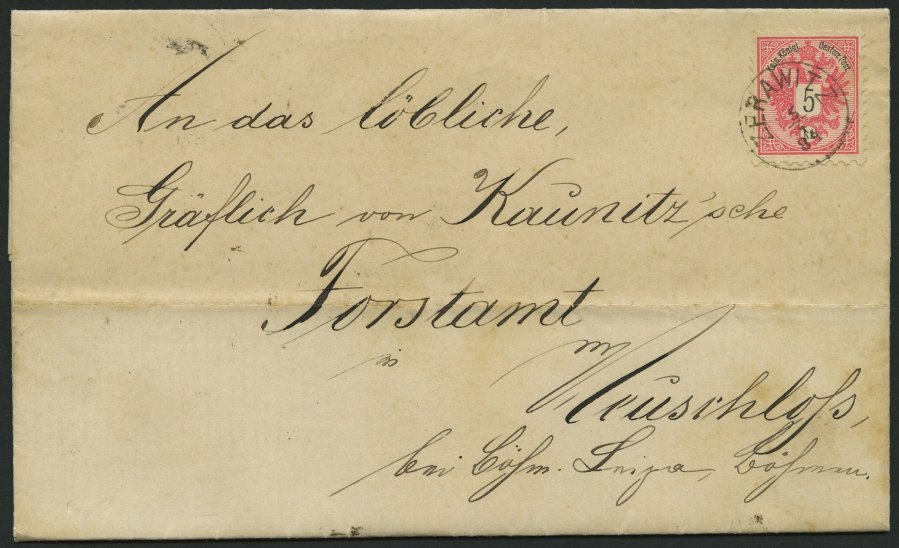 Kais. Königl. Oesterr. Post
5
kr.
An das löbliche,
Gräflich von Kaunitz'sche
Forstamt
in
Neuschloß,
bei Böhm. Leipa, Böhmen.